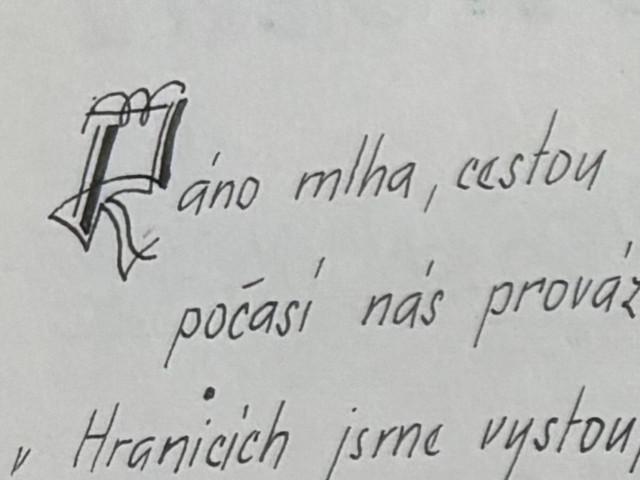 Ráno mlha, cestou
počasí nás prováz
v Hranicích jsme vystou